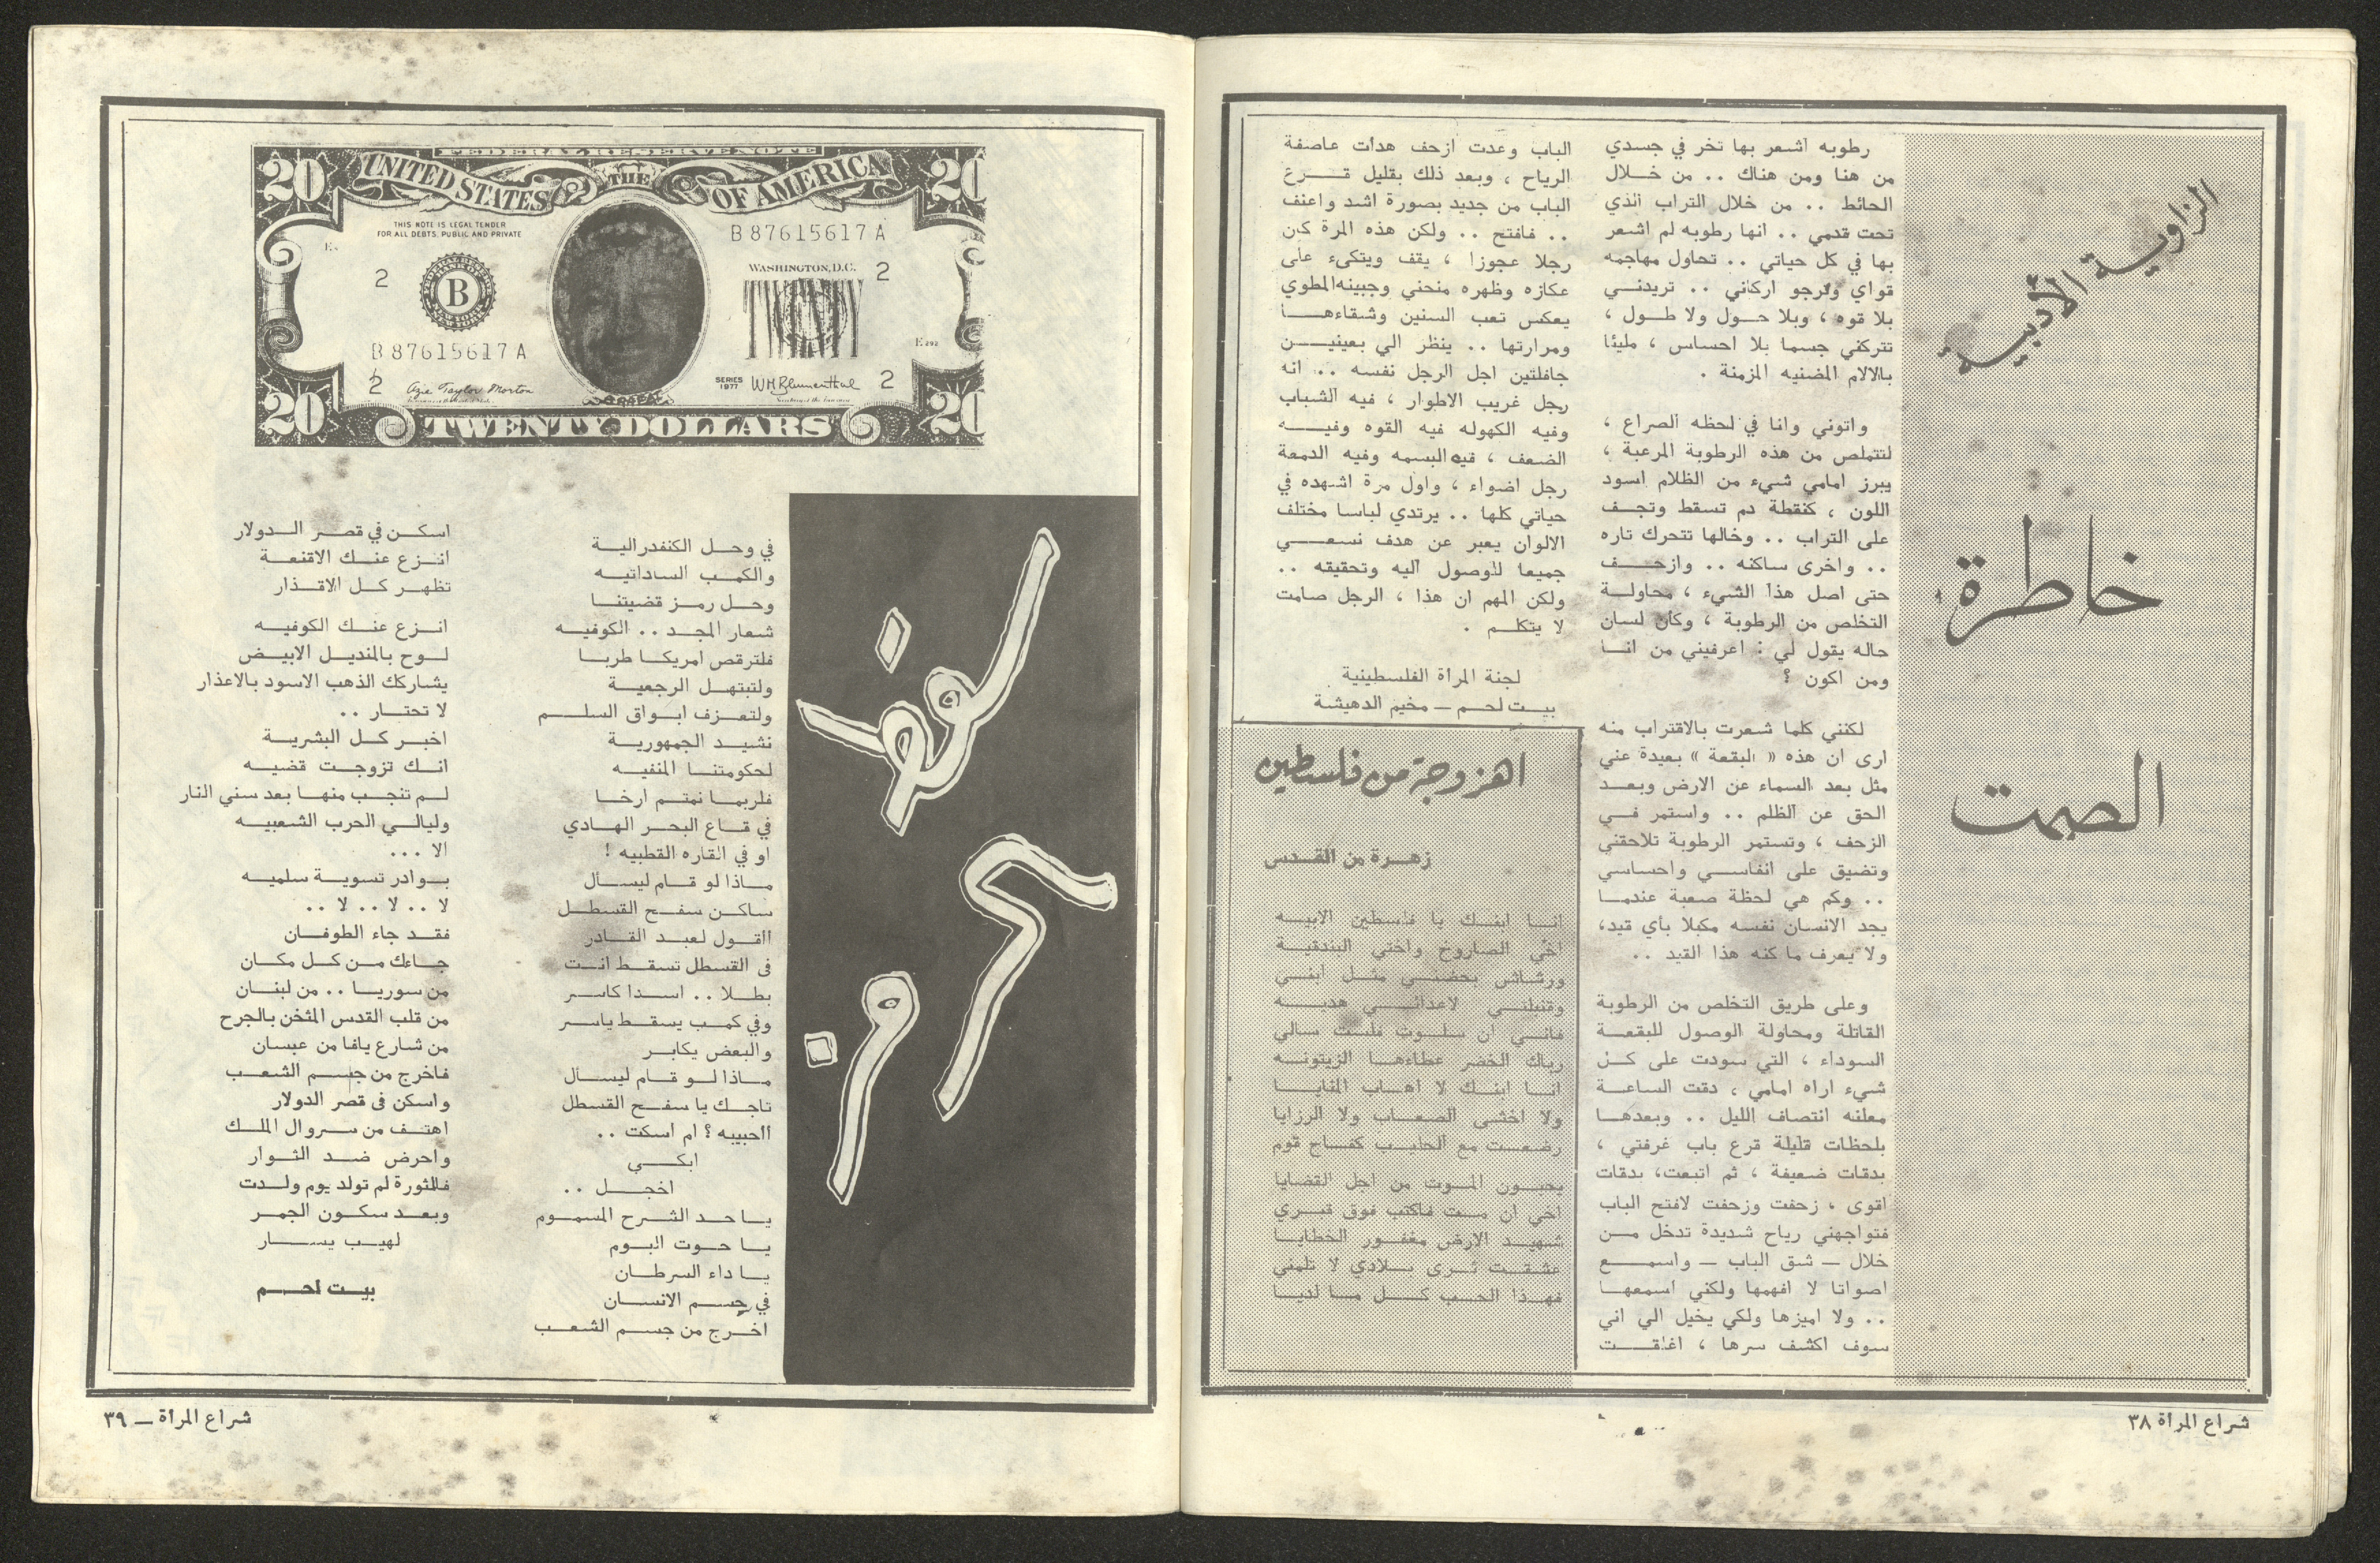 الزاوية الأدبية
خاطرة
الصمت
رطوبه اشعر بها تخر في جسدي
من هنا ومن هناك .. من خلال
الحائط .. من خلال التراب الذي
تحت قدمي .. انها رطوبه لم اشعر
بها في كل حياتي .. تحاول مهاجمه
قواي وترجو اركاني .. تريدني
بلا قوه ، وبلا حول ولا طول ،
تتركني جسما بلا احساس ، مليئا
بالالام المضنيه المزمنة .
واتوني وانا في لحظه الصراع ،
لتتملص من هذه الرطوبة المرعبة ،
يبرز امامي شيء من الظلام اسود
اللون ، كنقطة دم تسقط وتجف
على التراب .. وخالها تتحرك تاره
.. واخرى ساكنه .. وازحف
حتى اصل هذا الشيء ، محاولة
التخلص من الرطوبة ، وكأن لسان
حاله يقول لي : اعرفيني من انا
ومن اكون ؟
لكنني كلما شعرت بالاقتراب منه
ارى ان هذه « البقعة » بعيدة عني
مثل بعد السماء عن الارض وبعد
الحق عن الظلم .. واستمر في
الزحف ، وتستمر الرطوبة تلاحقني
وتضيق على انفاسي واحساسي
.. وكم هي لحظة صعبة عندما
يجد الانسان نفسه مكبلا بأي قيد،
ولا يعرف ما كنه هذا القيد ..
وعلى طريق التخلص من الرطوبة
القاتلة ومحاولة الوصول للبقعة
السوداء ، التي سودت على كل
شيء اراه امامي ، دقت الساعة
معلنه انتصاف الليل .. وبعدها
بلحظات قليلة قرع باب غرفتي ،
بدقات ضعيفة ، ثم اتبعت، بدقات
اقوى ، زحفت وزحفت لافتح الباب
فتواجهني رياح شديدة تدخل من
خلال — شق الباب — واسمع
اصواتا لا افهمها ولكني اسمعها
.. ولا اميزها ولكي يخيل الي اني
سوف اكشف سرها ، اغلقت
الباب وعدت ازحف هدأت عاصفة
الرياح ، وبعد ذلك بقليل قرع
الباب من جديد بصورة اشد واعنف
.. فافتح .. ولكن هذه المرة كان
رجلا عجوزا ، يقف ويتكىء على
عكازه وظهره منحني وجبينه المطوي
يعكس تعب السنين وشقاءها
ومرارتها .. ينظر الي بعينين
جافلتين اجل الرجل نفسه .. انه
رجل غريب الاطوار ، فيه الشباب
وفيه الكهوله فيه القوه وفيه
الضعف ، فيه البسمه وفيه الدمعة
رجل اضواء ، واول مرة اشهده في
حياتي كلها .. يرتدي لباسا مختلف
الالوان يعبر عن هدف نسعى
جميعا للوصول اليه وتحقيقه ..
ولكن المهم ان هذا ، الرجل صامت
لا يتكلم .
لجنة المرأة الفلسطينية
بيت لحم — مخيم الدهيشة
اهزوجة من فلسطين
زهرة من القدس
انا ابنك يا فلسطين الابيه
اخي الصاروخ واختي البندقية
ورشاش بحضني مثل ابني
وقنبلتي لاعدائي هديه
فاني ان سلوت فلست سالي
رباك الخضر عطاءها الزيتونه
انا ابنك لا اهاب المنايا
ولا اخشى الصعاب ولا الرزايا
رضعت مع الحليب كفاح قوم
يحبون الموت من اجل القضايا
اخي ان مت فاكتب فوق قبري
شهيد الارض مغفور الخطايا
عشقت ثرى بلادي لا تلمني
فهذا الحب كل ما لديا
شراع المرأة ٣٨
20 FEDERAL RESERVE NOTE 20
THE UNITED STATES OF AMERICA
THIS NOTE IS LEGAL TENDER
FOR ALL DEBTS, PUBLIC AND PRIVATE
B 87615617 A
WASHINGTON, D.C.
2 B 2
B 87615617 A
2 Azie Taylor Morton
SERIES
1977
W M Blumenthal 2
ARAFAT
20 TWENTY DOLLARS 20
في وحل الكنفدرالية
والكمب الساداتيه
وحل رمز قضيتنا
شعار المجد .. الكوفيه
فلترقص امريكا طربا
ولتبتهل الرجعية
ولتعزف ابواق السلم
نشيد الجمهورية
لحكومتنا المنفيه
فلربما نمتم ارخا
في قاع البحر الهادي
او في القاره القطبيه !
ماذا لو قام ليسأل
ساكن سفح القسطل
أأقول لعبد القادر
فى القسطل تسقط انت
بطلا .. اسدا كاسر
وفي كمب يسقط ياسر
والبعض يكابر
ماذا لو قام ليسأل
تاجك يا سفح القسطل
ااحبيبه ؟ ام اسكت ..
ابكي
اخجل ..
يا حد الشرح المسموم
يا حوت البوم
يا داء السرطان
في جسم الانسان
اخرج من جسم الشعب
اسكن في قصر الدولار
انزع عنك الاقنعة
تظهر كل الاقذار
انزع عنك الكوفيه
لوح بالمنديل الابيض
يشاركك الذهب الاسود بالاعذار
لا تحتار ..
اخبر كل البشرية
انك تزوجت قضيه
لم تنجب منها بعد سني النار
وليالي الحرب الشعبيه
الا ...
بوادر تسوية سلميه
لا .. لا .. لا ..
فقد جاء الطوفان
جاءك من كل مكان
من سوريا .. من لبنان
من قلب القدس المثخن بالجرح
من شارع يافا من عبسان
فاخرج من جسم الشعب
واسكن فى قصر الدولار
اهتف من سروال الملك
واحرض ضد الثوار
فالثورة لم تولد يوم ولدت
وبعد سكون الجمر
لهيب يسار
بيت لحم
شراع المرأة — ٣٩